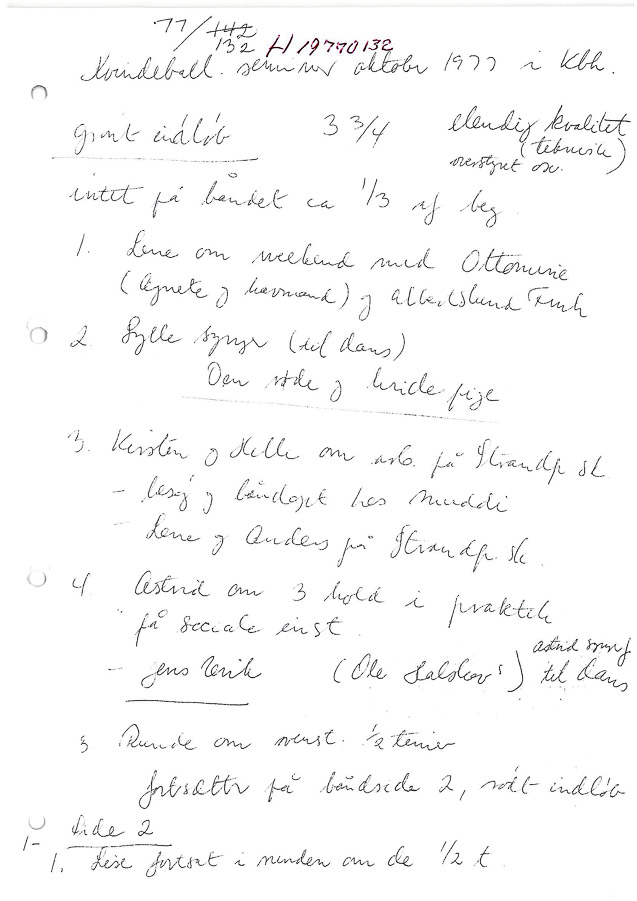 77/142
132 H 19770132
Kvindeball. seminar oktober 1977 i Kbh.
grønt indløb 3 3/4 elendig kvalitet
(teknisk)
overstyret osv.
intet på båndet ca 1/3 af beg
1. Lene om weekend med Ottomine
(Agnete og havmand) og Albertslund
2 Sylle synger (til dans)
Den røde og hvide pige
3. Kirsten og Helle om arb. på Strandp sk
- besøg og båndoptaget hos Muddi
- Lene og Anders på Strandp. sk.
4 Astrid om 3 hold i praktik
på sociale inst.
- Jens Uerik (Ole Halskov's) astrid synger
til dans
5 Runde om svenst. 1/2 timer
fortsætter på båndside 2, rødt indløb
Side 2
1-
1. Lise fortsat i runden om de 1/2 t.